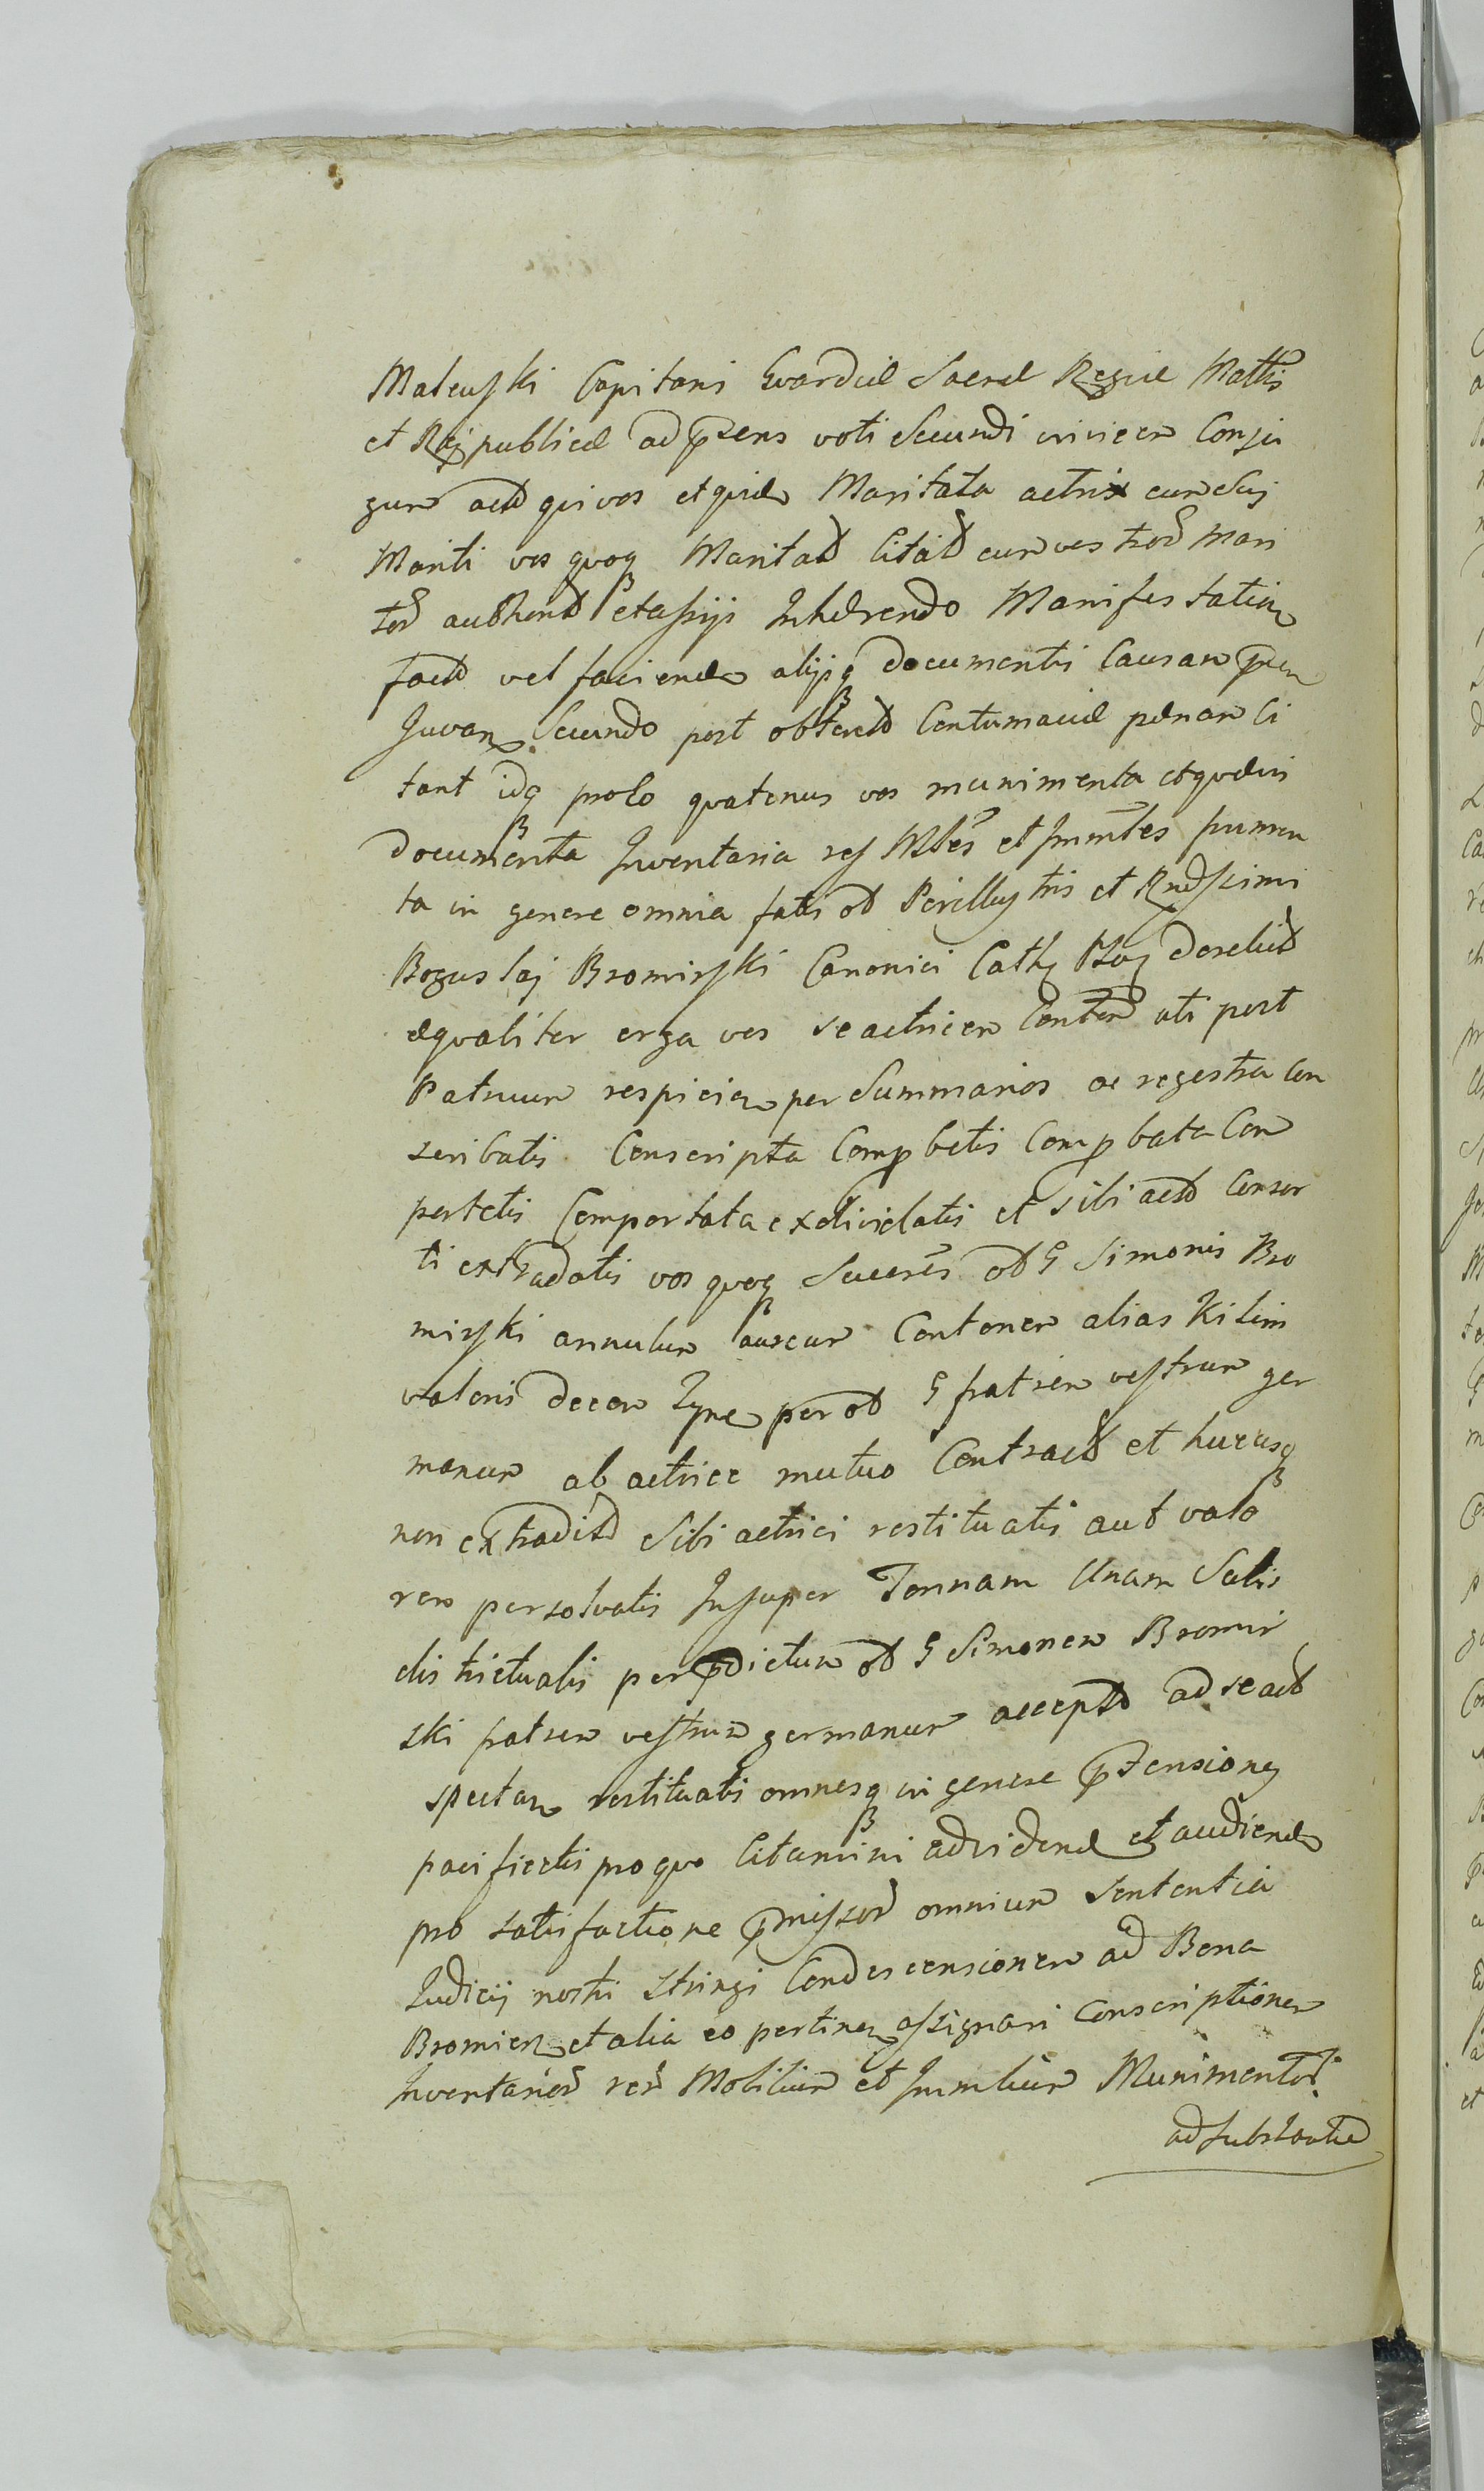 Mateuski Capitani Gvardiæ Sacræ Regiæ Mattis
et Reipublicæ ad præsens voti Secundi invicem Conju
gum act qui vos et quid Maritata actrix cum Suj
Mariti vos quoq Maritat Citat cum vestror Mari
tor authent etassijs Inhærendo Manifestation
fact vel faciend alijsq documentis Causam præn
Juvan Secundo post obtent Contumaciæ pænam Ci
tant idq prolo quatenus vos munimenta et quævis
documenta Inventaria res Mbles et Immbles
ta in genere omnia fatis ol Perillustris et Rndssimi
Boguslaj Bromirski Canonici Cath derelict
æqualiter erga vos se actricem uti post
Patruum respicien per Summarios ac regestra con
scribatis Conscripta Comprobetis Comprobata Com
portetis Comportata ex dividatis et sibi act Consor
ti extradatis vos quoq Succres ol G Simonis Bro
mirski annulum aureum Contonem alias Kilim
valoris decem per ol G fratrem vestrum ger
manum ab actrice mutuo Contract et hucusq
non extradit Sibi actrici restituatis aut valo
rem persolvatis Insuper Tonnam Unam Salis
districtualis per prædictum ol G Simonem Bromir
ski fratrem vestrum germanum accept ad se act
spectan restituatis omnesq in genere prætensiones
pacificetis pro quo Citamini ad vidend et audiend
pro satisfactione præmissor omnium Sententia
Judicij nostri Stringi Condescensionem ad Bona
Bromierz et alia eo pertinen assignari Conscriptionem
Inventarior rer Mobilium et Immblium Munimentor
ad Substantia